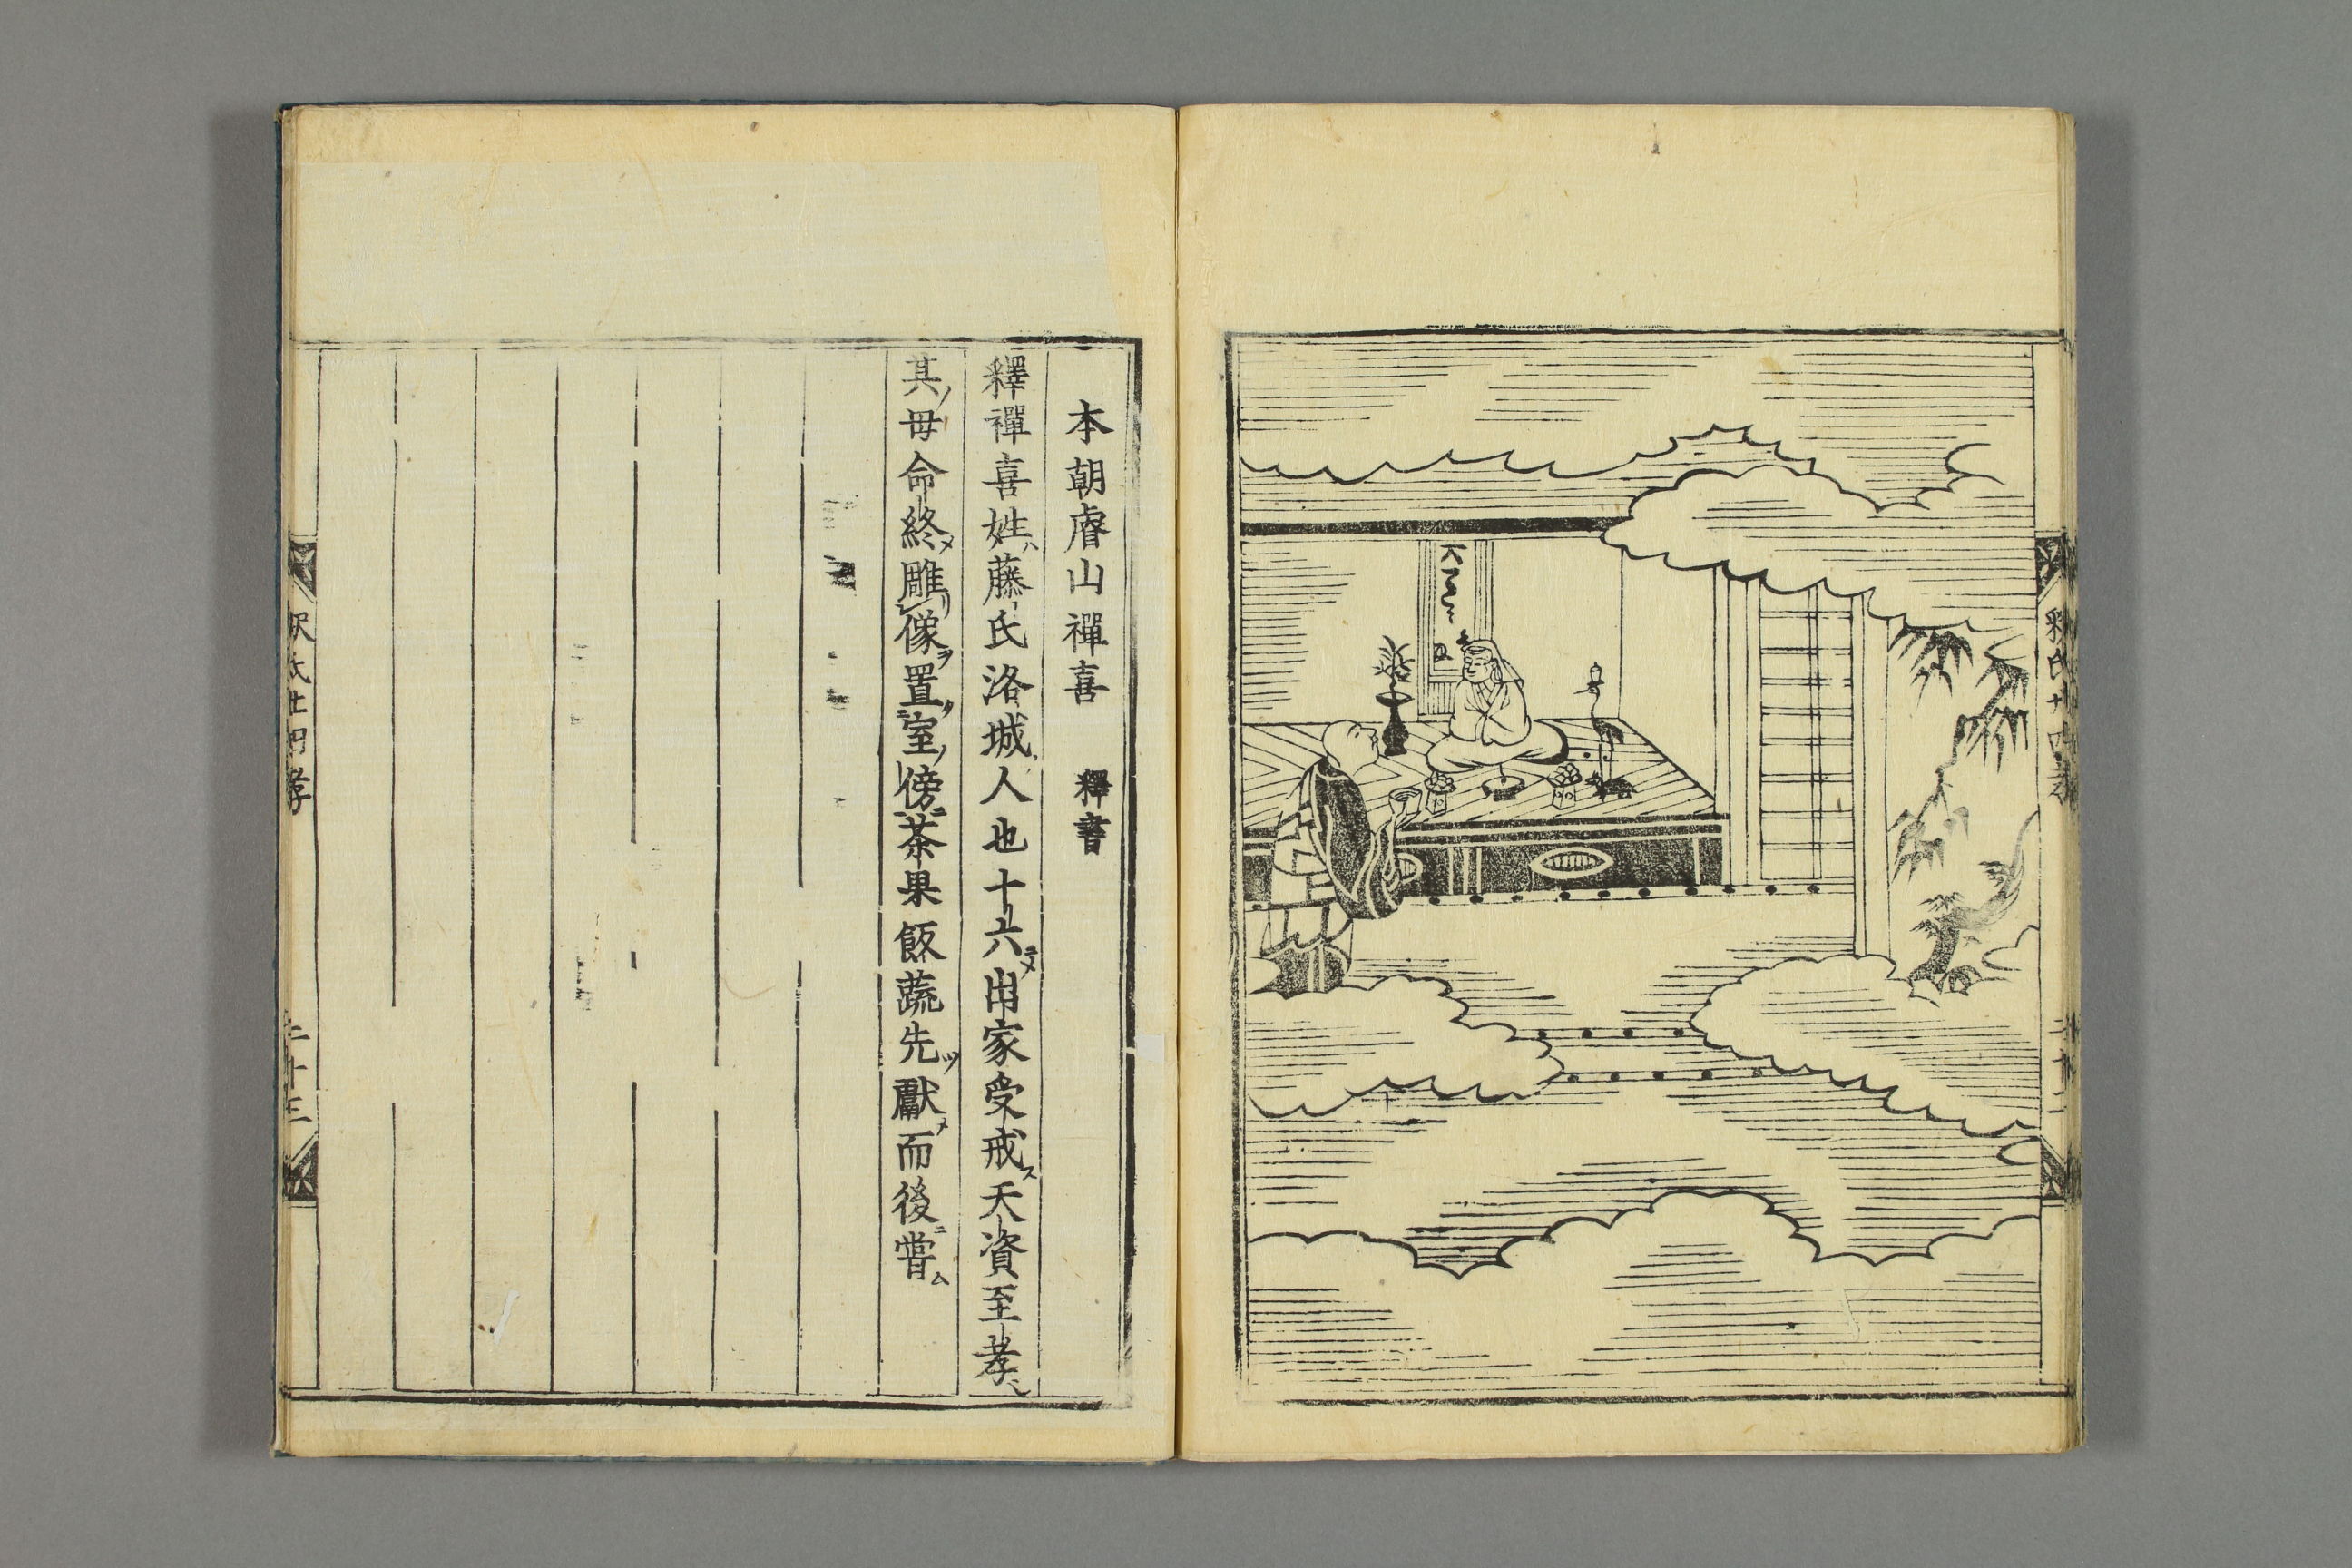 釈氏廿四孝
二十二
本朝睿山禪喜　釋書
釋禪喜姓ハ藤氏洛城ノ人也十六ニヨメ出家受戒ス天資至孝
其ノ母命終メ雕リ像ヲ置ク室ノ傍ニ茶果飯蔬先ツ獻メ而後ニ嘗ム
釈氏廿四孝
二十三